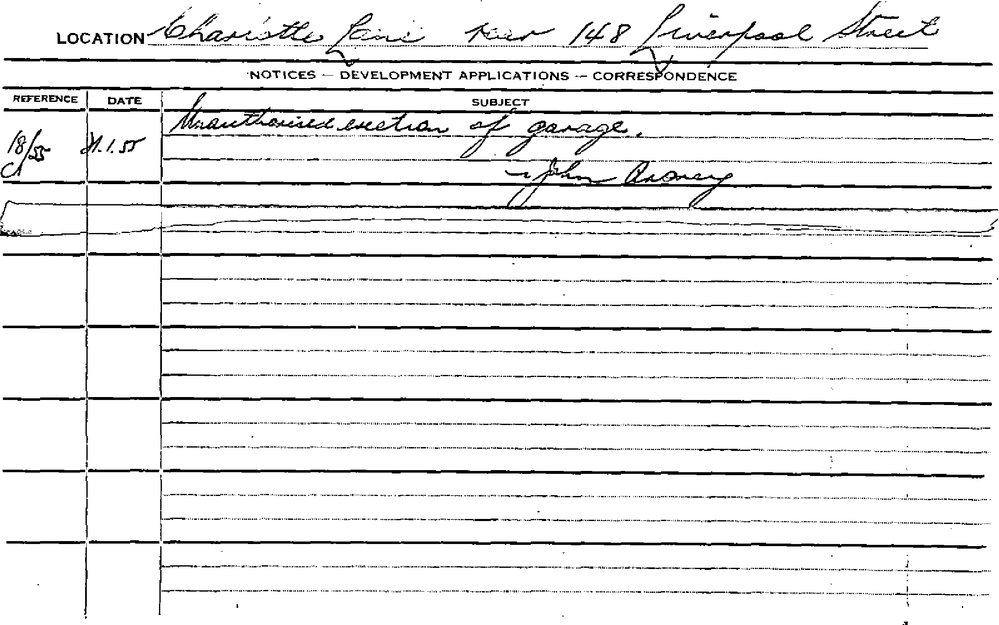 LOCATION Charlotte Lane rear 148 Liverpool Street
NOTICES — DEVELOPMENT APPLICATIONS — CORRESPONDENCE
REFERENCE DATE SUBJECT
Unauthorised erection of garage.
18/55 .1.55
— John